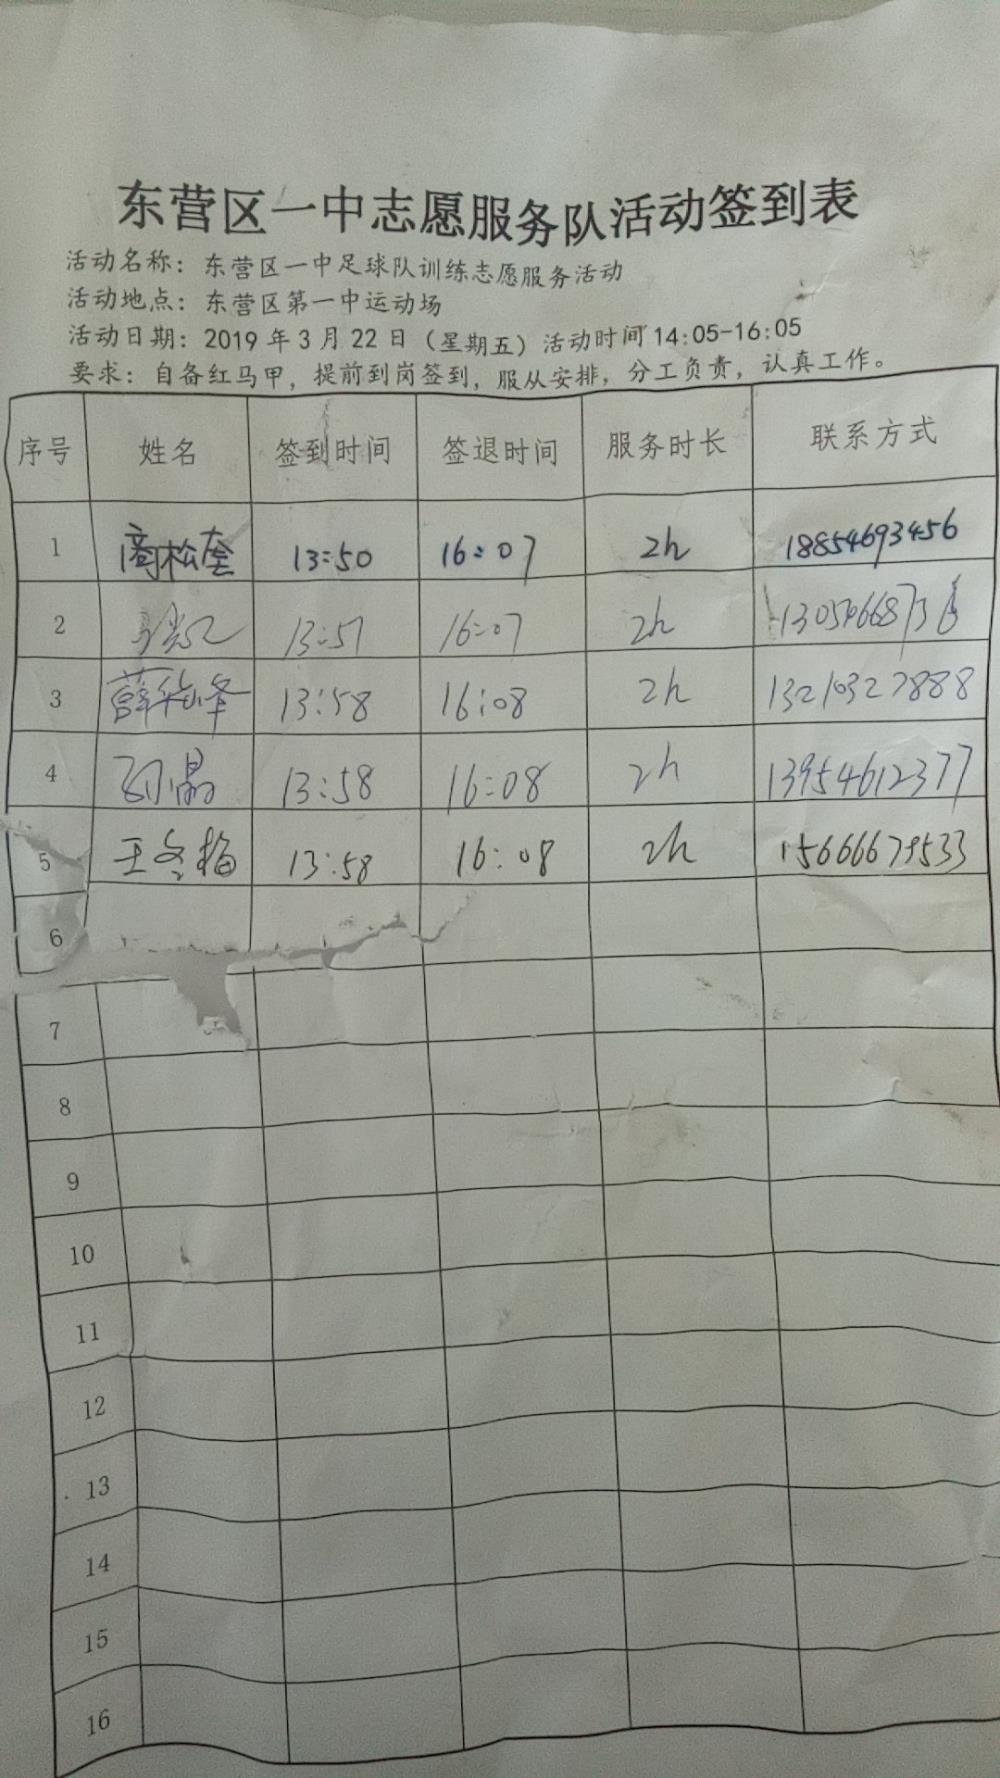 东营区一中志愿服务队活动签到表
活动名称：东营区一中足球队训练志愿服务活动
活动地点：东营区第一中运动场
活动日期：2019年3月22日（星期五）活动时间14:05-16:05
要求：自备红马甲，提前到岗签到，服从安排，分工负责，认真工作。
序号 姓名 签到时间 签退时间 服务时长 联系方式
1 商松奎 13:50 16:07 2h 18854693456
2 13:51 16:07 2h
3 薛华峰 13:58 16:08 2h 13210327888
4 孙晶 13:58 16:08 2h 13954612377
5 王冬梅 13:58 16:08 2h 15666679533
6
7
8
9
10
11
12
13
14
15
16